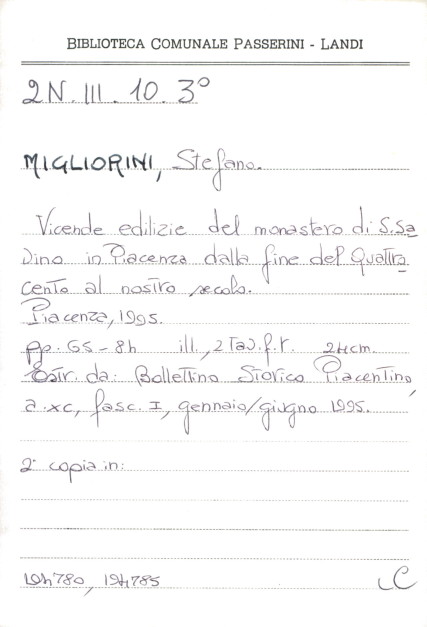 BIBLIOTECA COMUNALE PASSERINI - LANDI
2N. III. 10. 3°
MIGLIORINI, Stefano.
Vicende edilizie del monastero di S.Sa
vino in Piacenza dalla fine del Quattro
cento al nostro secolo.
Piacenza, 1995.
pp. 65-84 ill., 2 tav. f.t. 24cm.
Estr. da: Bollettino Storico Piacentino,
a. XC, fasc. I, gennaio/giugno 1995.
2ª copia in:
194780, 194785